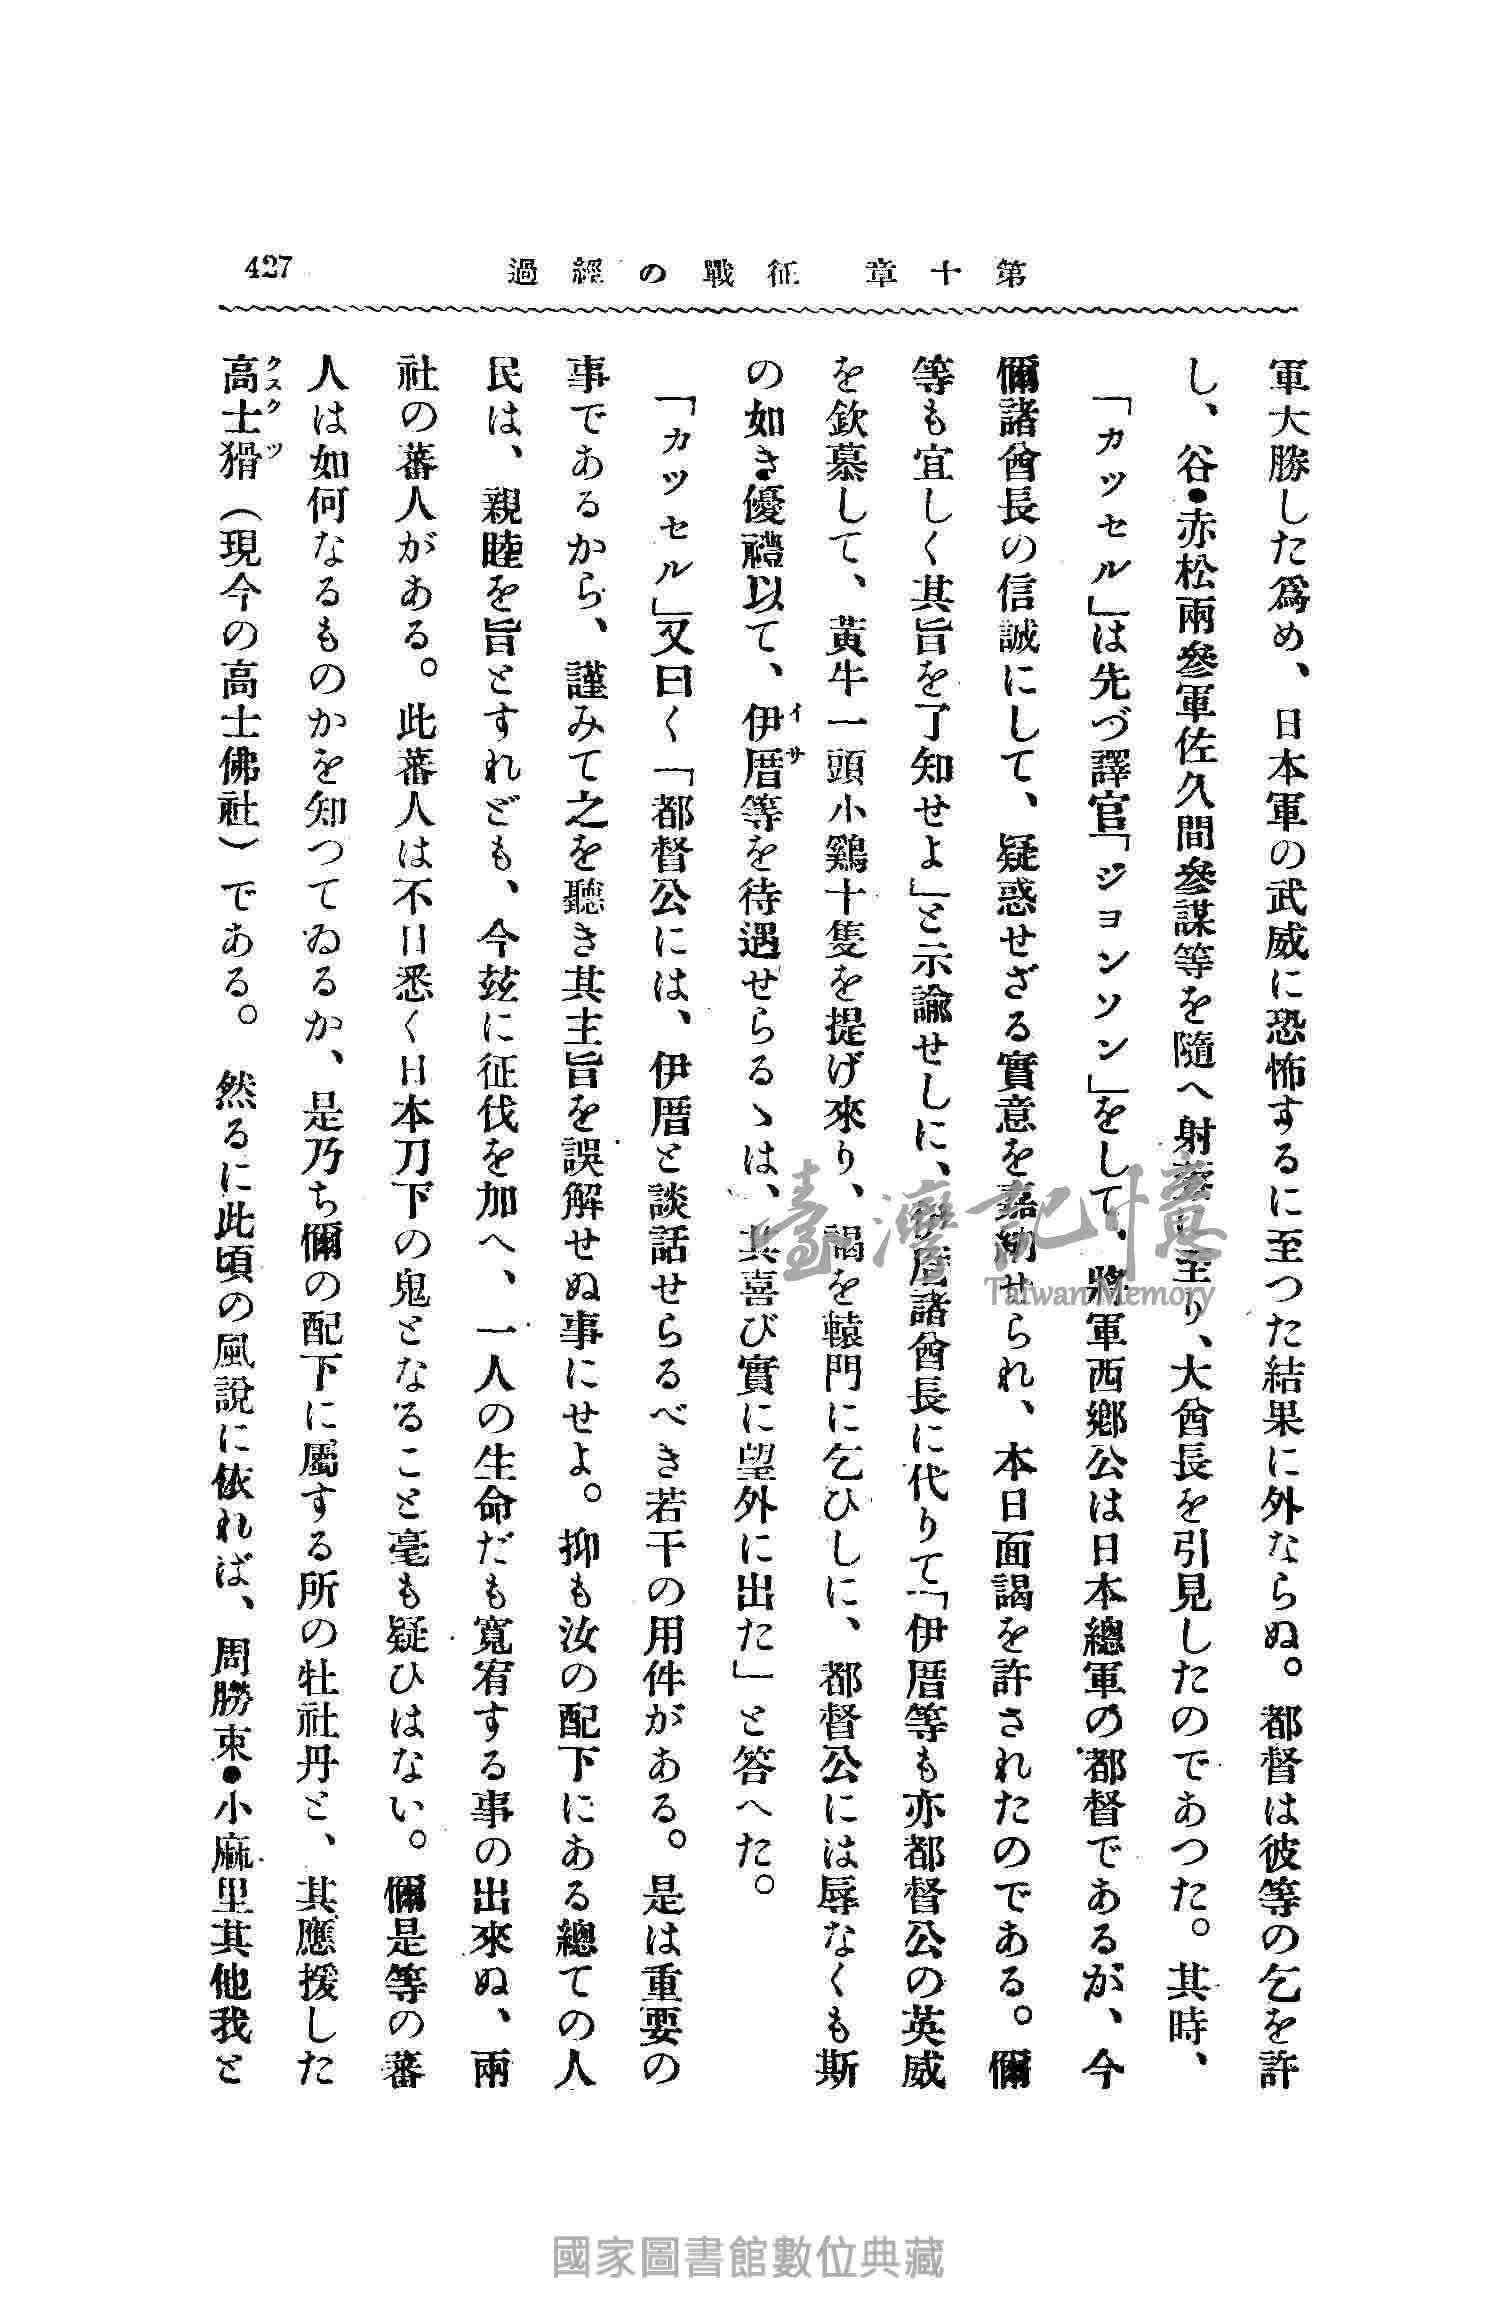 427
第十章 征戰の經過
軍大勝した爲め、日本軍の武威に恐怖するに至つた結果に外ならぬ。都督は彼等の乞を許
し、谷●赤松兩參軍佐久間參謀等を隨へ射寮に至り、大酋長を引見したのであつた。其時、
「カッセル」は先づ譯官「ジヨンソン」をして、將軍西鄕公は日本總軍の都督であるが、今
彌諸酋長の信誠にして、疑惑せざる實意を嘉納せられ、本日面謁を許されたのである。彌
等も宜しく其旨を了知せよ」と示諭せしに、伊厝諸酋長に代りて「伊厝等も亦都督公の英威
を欽慕して、黃牛一頭小鷄十隻を提げ來り、謁を轅門に乞ひしに、都督公には辱なくも斯
の如き優禮以て、伊厝等を待遇せらるゝは、其喜び實に望外に出た」と答へた。
イサ
「カッセル」又曰く「都督公には、伊厝と談話せらるべき若干の用件がある。是は重要の
事であるから、謹みて之を聽き其主旨を誤解せぬ事にせよ。抑も汝の配下にある總ての人
民は、親睦を旨とすれども、今玆に征伐を加へ、一人の生命だも寬宥する事の出來ぬ、兩
社の蕃人がある。此蕃人は不日悉く日本刀下の鬼となること毫も疑ひはない。彌是等の蕃
人は如何なるものかを知つてゐるか、是乃ち彌の配下に屬する所の牡社丹と、其應援した
高士猾（現今の高士佛社）である。然るに此頃の風說に依れば、周勝束●小麻里其他我と
クスクツ
臺灣記憶
Taiwan Memory
國家圖書館數位典藏